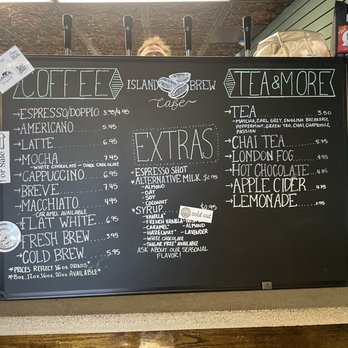 COFFEE
ESPRESSO/DOPPIO 3.95/4.95
AMERICANO 4.95
LATTE 6.95
MOCHA 7.45
- WHITE CHOCOLATE - DARK CHOCOLATE
CAPPUCCINO 6.95
BREVE 7.45
MACCHIATO 4.95
CARAMEL AVAILABLE
FLAT WHITE 6.95
FRESH BREW 3.95
COLD BREW 5.95
*PRICES REFLECT 16 OZ DRINKS*
*8oz, 12oz, 16oz, 20oz AVAILABLE*
ISLAND BREW
Cafe
EXTRAS
- ESPRESSO SHOT
- ALTERNATIVE MILK
- ALMOND
- OAT
- SOY
- COCONUT
- SYRUP $0.95
- VANILLA
- FRENCH VANILLA
- CARAMEL - ALMOND
- HAZELNUT - LAVENDER
- WHITE CHOCOLATE
- SUGAR FREE AVAILABLE
ASK ABOUT OUR SEASONAL
FLAVOR!
sold out
TEA & MORE
TEA 3.50
- MATCHA, EARL GREY, ENGLISH BREAKFAST,
PEPPERMINT, GREEN TEA, CHAI, CHAMOMILE,
PASSION
CHAI TEA 5.95
LONDON FOG
HOT CHOCOLATE
APPLE CIDER
LEMONADE
For Sale